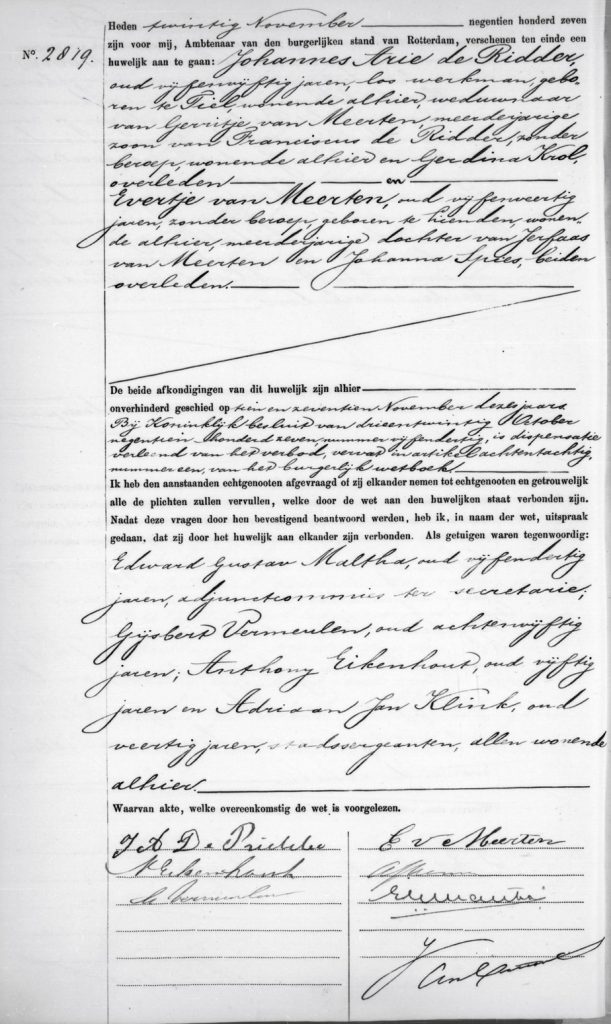 Heden twintig November negentien honderd zeven
zijn voor mij, Ambtenaar van den burgerlijken stand van Rotterdam, verschenen ten einde een
Nº. 2819.
huwelijk aan te gaan: Johannes Arie de Ridder,
oud vijfenvijftig jaren, los werkman, gebo-
ren te Tiel wonende alhier, weduwnaar
van Gerritje van Meerten meerderjarige
zoon van Franciscus de Ridder, zonder
beroep, wonende alhier en Gerdina Krol
overleden en
Evertje van Meerten, oud vijfenveertig
jaren, zonder beroep, geboren te Lienden, wonen-
de alhier, meerderjarige dochter van Jerfaas
van Meerten en Johanna Spies, beiden
overleden.
De beide afkondigingen van dit huwelijk zijn alhier
onverhinderd geschied op tien en zeventien November dezes jaars
Bij Koninklijk besluit van drieentwintig October
negentien honderd zeven, nummer vijfendertig, is dispensatie
verleend van het verbod, vervat in artikel achtentachtig,
nummer een, van het burgerlijk wetboek.
Ik heb den aanstaanden echtgenooten afgevraagd of zij elkander nemen tot echtgenooten en getrouwelijk
alle de plichten zullen vervullen, welke door de wet aan den huwelijken staat verbonden zijn.
Nadat deze vragen door hen bevestigend beantwoord werden, heb ik, in naam der wet, uitspraak
gedaan, dat zij door het huwelijk aan elkander zijn verbonden. Als getuigen waren tegenwoordig:
Edward Gustav Maltha, oud vijfendertig
jaren, adjunctcommies ter secretarie;
Gijsbert Vermeulen, oud achtenvijftig
jaren; Anthony Eikenhout, oud vijftig
jaren en Adriaan Jan Klink, oud
veertig jaren, stadssergeanten, allen wonende
alhier.
Waarvan akte, welke overeenkomstig de wet is voorgelezen.
J A De Ridder
E v Meerten
A Eikenhout
G Vermeulen